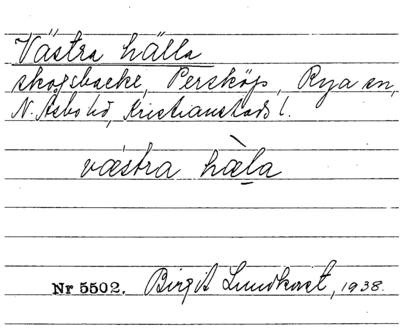 Västra hälla
skogsbacke, Persköp, Rya sn,
N. Åsbo hd, Kristianstads l.
væ̀stra hæ̀la
Nr 5502. Birgit Lundkvist, 1938.